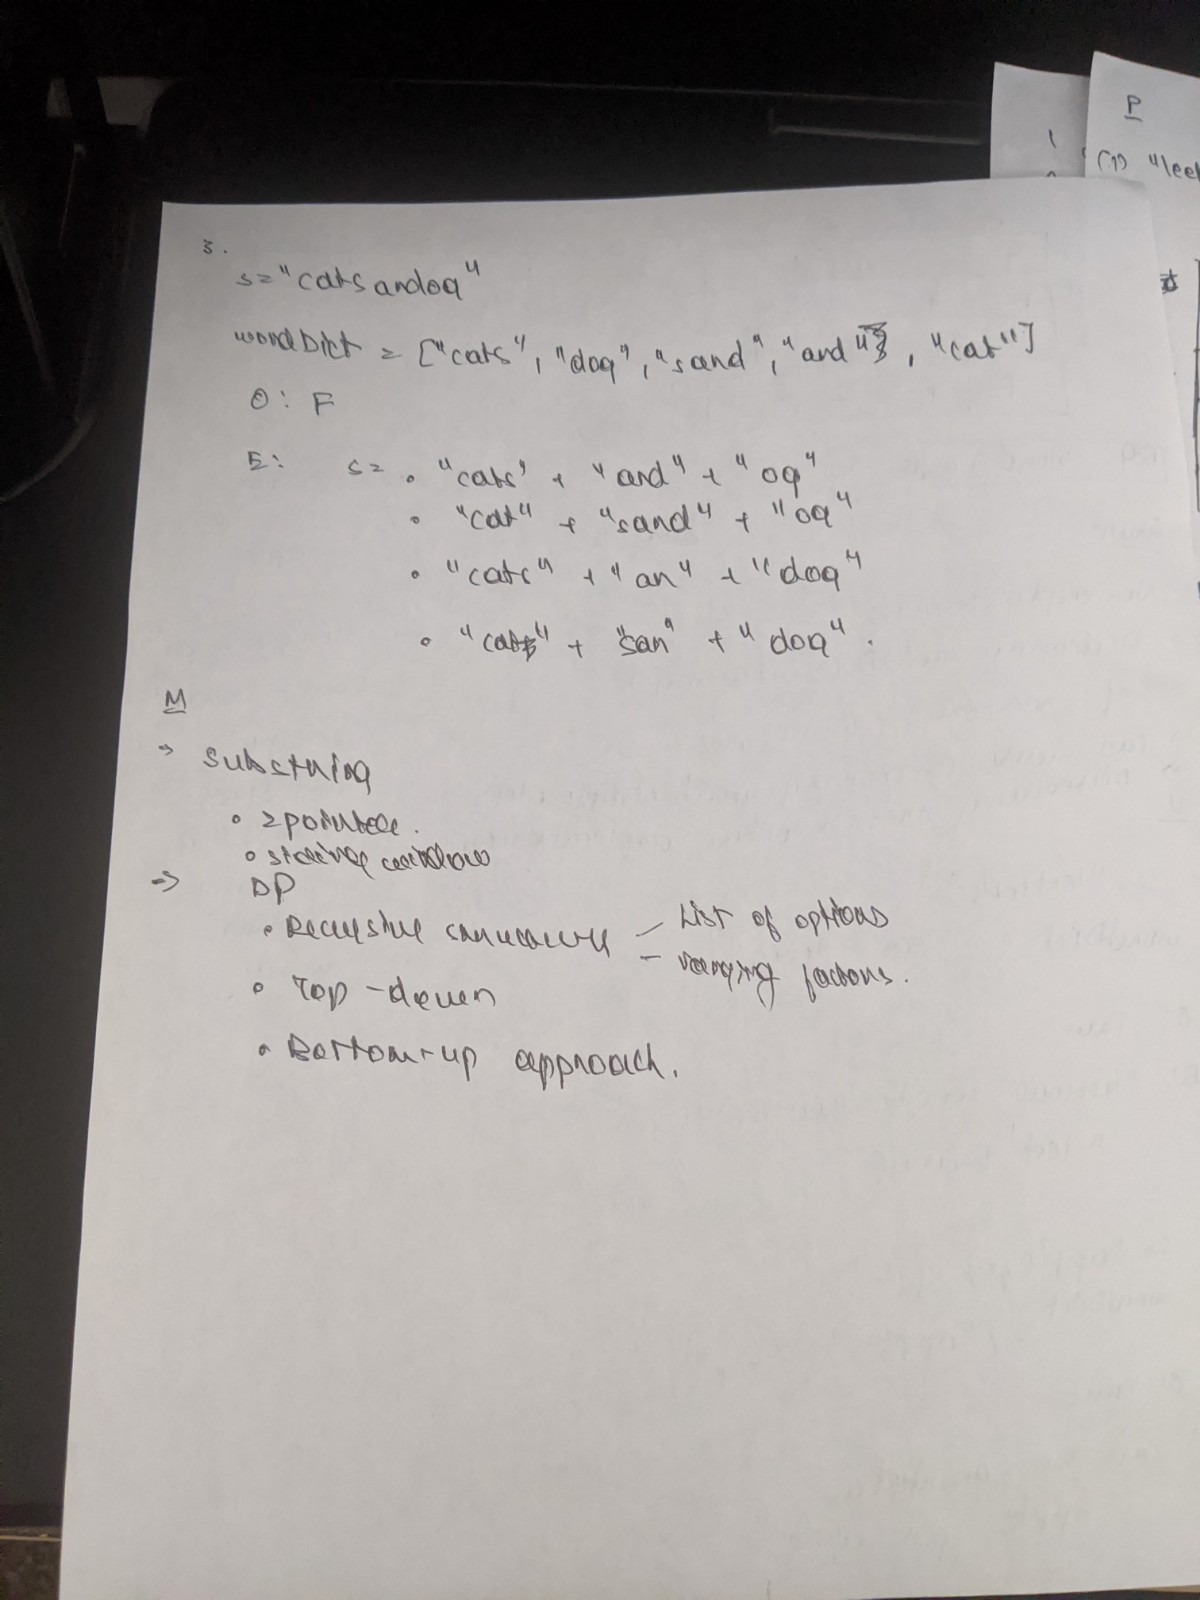 P
(1) "leet
3.
s="catsandog"
wordDict = ["cats", "dog", "sand", "and", "cat"]
O: F
E: s= • "cats" + "and" + "og"
• "cat" + "sand" + "og"
• "cats" + "an" + "dog"
• "cat" + "san" + "dog".
M
→ substring
• 2 pointer.
• sliding window
→ DP
• Recursive – List of options
– varying factors.
• Top-down
• Bottom-up approach.